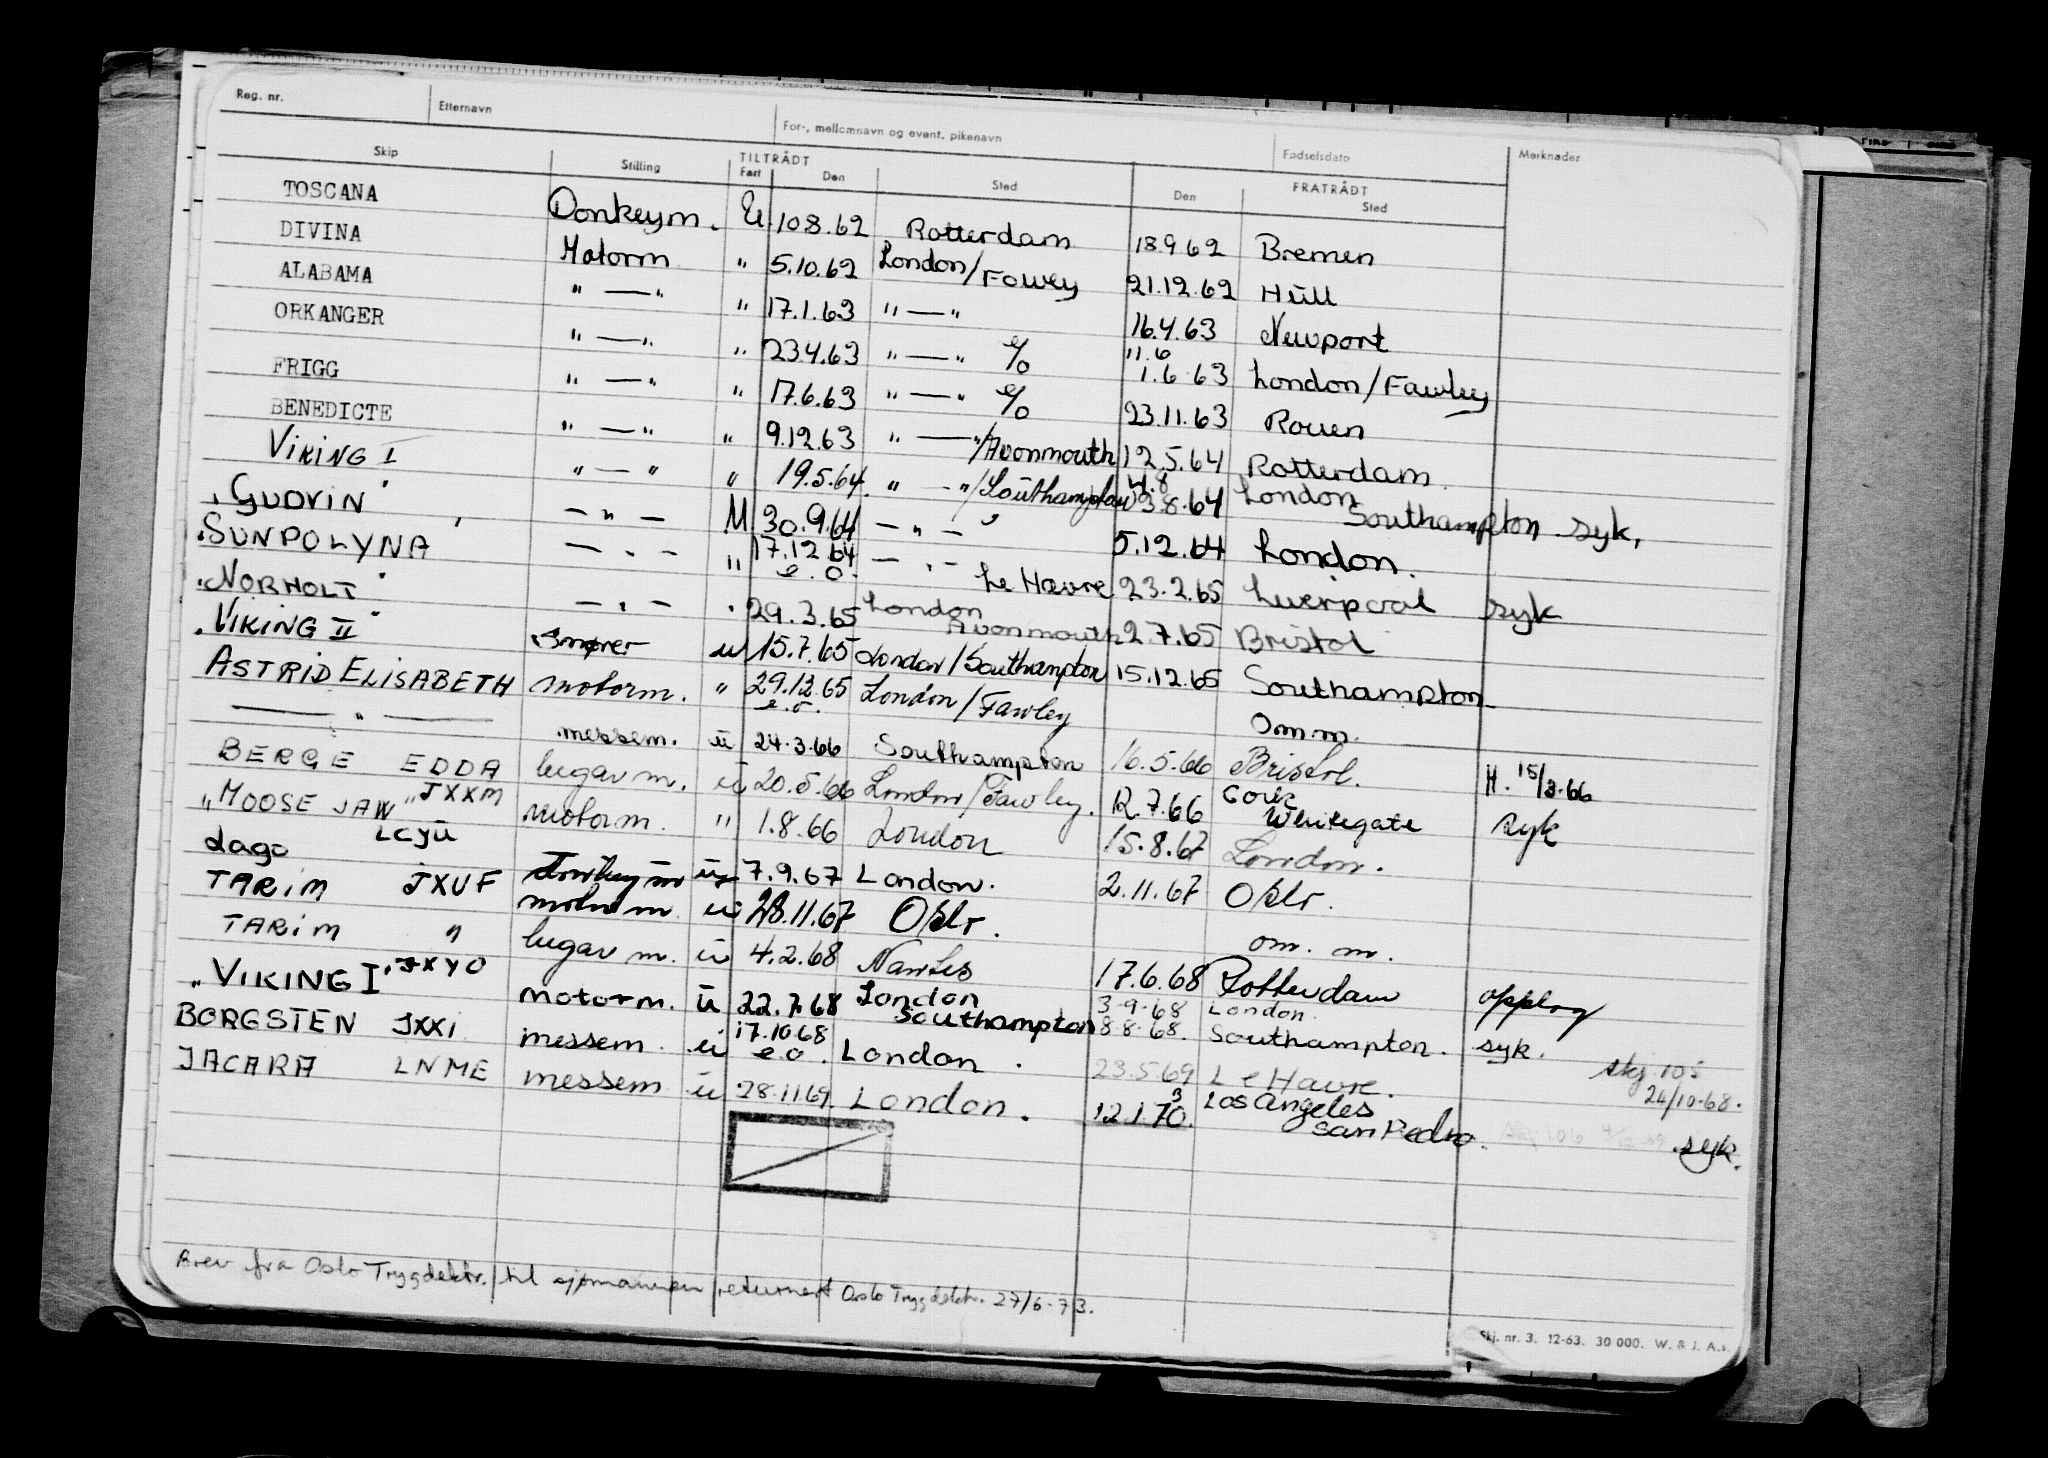 Reg. nr. Etternavn For-, mellomnavn og event. pikenavn Fødselsdato Merknader
Skip Stilling TILTRÅDT Fart Den Sted FRATRÅDT Den Sted
TOSCANA Donkeym. U. 10.8.62 Rotterdam 18.9.62 Bremen
DIVINA Motorm " 5.10.62 London/Fowey 21.12.62 Hull
ALABAMA " — " " 17.1.63 " — " 16.4.63 Newport
ORKANGER " — " " 23.4.63 " — " e/o 11.6 1.6.63 London/Fawley
FRIGG " — " " 17.6.63 " — " e/o 23.11.63 Rouen
BENEDICTE " — " " 9.12.63 " — "/Avonmouth 12.5.64 Rotterdam.
VIKING I " — " " 19.5.64. " — "/Southampton 4.8 3.8.64 London Southampton syk.
"GUDVIN" — " — M 30.9.64 — " — 5.12.64 London.
"SUNPOLYNA — " — " 17.12.64 e.o. — " — Le Havre 23.2.65 Liverpool syk
"NORHOLT" — " — " 29.3.65 London Avonmouth 2.7.65 Bristol
"VIKING II" Smører u 15.7.65 London/Southampton 15.12.65 Southampton
ASTRID ELISABETH motorm. " 29.12.65 e.o. London/Fawley Om.m.
— " — messem. u 24.3.66 Southampton 16.5.66 Bristol. H. 15/3-66
BERGE EDDA JXXM lugar m. u 20.5.66 London/Fawley. 12.7.66 Cork Whitegate syk
"MOOSE JAW" LCYU motorm. " 1.8.66 London 15.8.67 London.
Lago u 7.9.67 London. 2.11.67 Oslo.
TARIM JXUF motorm u 28.11.67 Oslo. om. m.
TARIM " lugar m. u 4.2.68 Nantes 17.6.68 Rotterdam opplag
"VIKING I" JXYO motorm. u 22.7.68 London Southampton 3-9-68 London. 8.8.68. Southampton. syk.
BORGSTEN JXXI messem. u 17.10.68 e.o. London. 23.5.69 Le Havre. skj 105 24/10-68.
JACARA LNME messem u 28.11.69. London. 12.1.70. 3 Los Angeles San Pedro. syk.
Brev fra Oslo Trygdektr. til sjømannen returnert Oslo Trygdektr. 27/6-73.
Skj. nr. 3. 12-63. 30 000. W. & J. A.s.